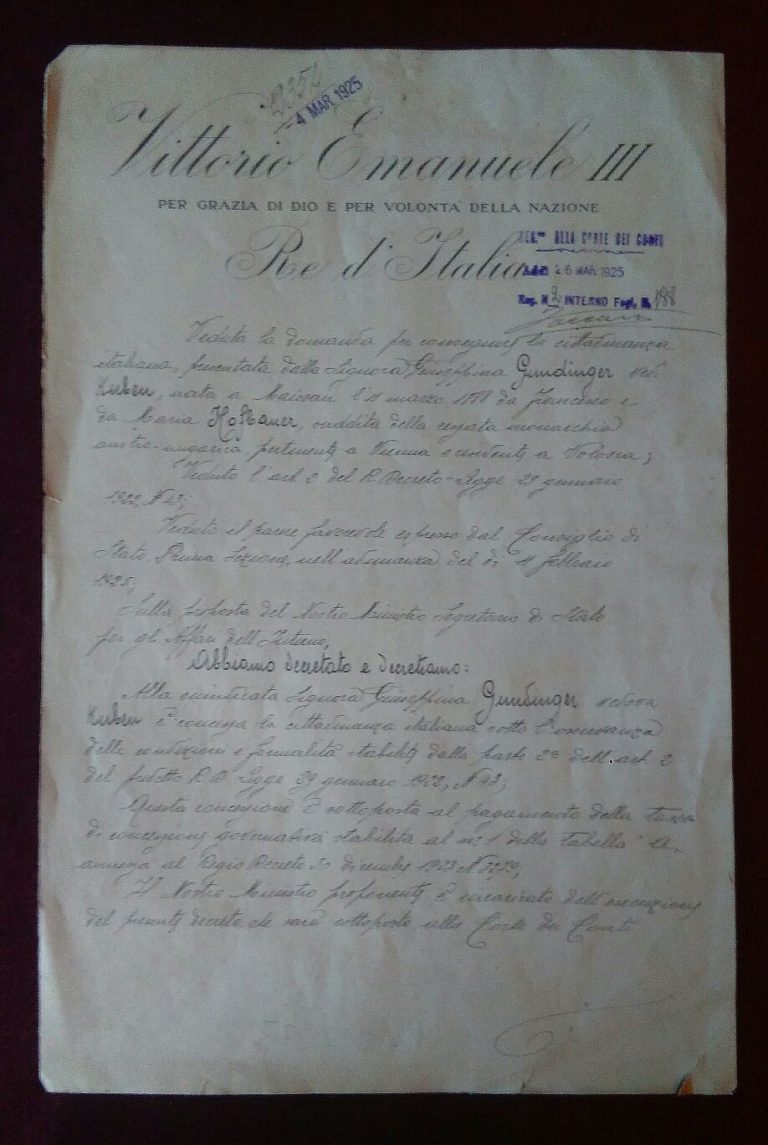 4 MAR 1925
Vittorio Emanuele III
PER GRAZIA DI DIO E PER VOLONTA DELLA NAZIONE
Re d'Italia
ALLA CORTE DEI CONTI
26 MAR 1925
Reg. N. 2 INTERNO Fogl. N. 188
Veduta la domanda per conseguire la cittadinanza
italiana, presentata dalla Signora Giuseppina Gundinger ved.
Kuben, nata a Maissau l'11 marzo da Francesco e
da Maria Hofbauer, suddita della cessata monarchia
austro-ungarica, pertinente a Vienna e residente a Volosca;
Veduto l'art. 2 del R. Decreto-Legge 29 gennaio
1922, N 43;
Veduto il parere favorevole espresso dal Consiglio di
Stato Prima Sezione, nell'adunanza del dì 11 febbraio
1925;
Sulla proposta del Nostro Ministro Segretario di Stato
per gli Affari dell'Interno,
Abbiamo decretato e decretiamo:
Alla nominata Signora Giuseppina Gundinger vedova
Kuben è concessa la cittadinanza italiana sotto l'osservanza
delle condizioni e formalità stabilite dalla parte 2a dell'art. 2
del predetto R. D. Legge 29 gennaio 1922, N 43;
Questa concessione è sottoposta al pagamento della tassa
di concessione governativa stabilita al n. 1 della tabella A.
annessa al Regio Decreto 30 dicembre 1923 N 3279;
Il Nostro Ministro proponente è incaricato dell'esecuzione
del presente decreto che sarà sottoposto alla Corte dei Conti